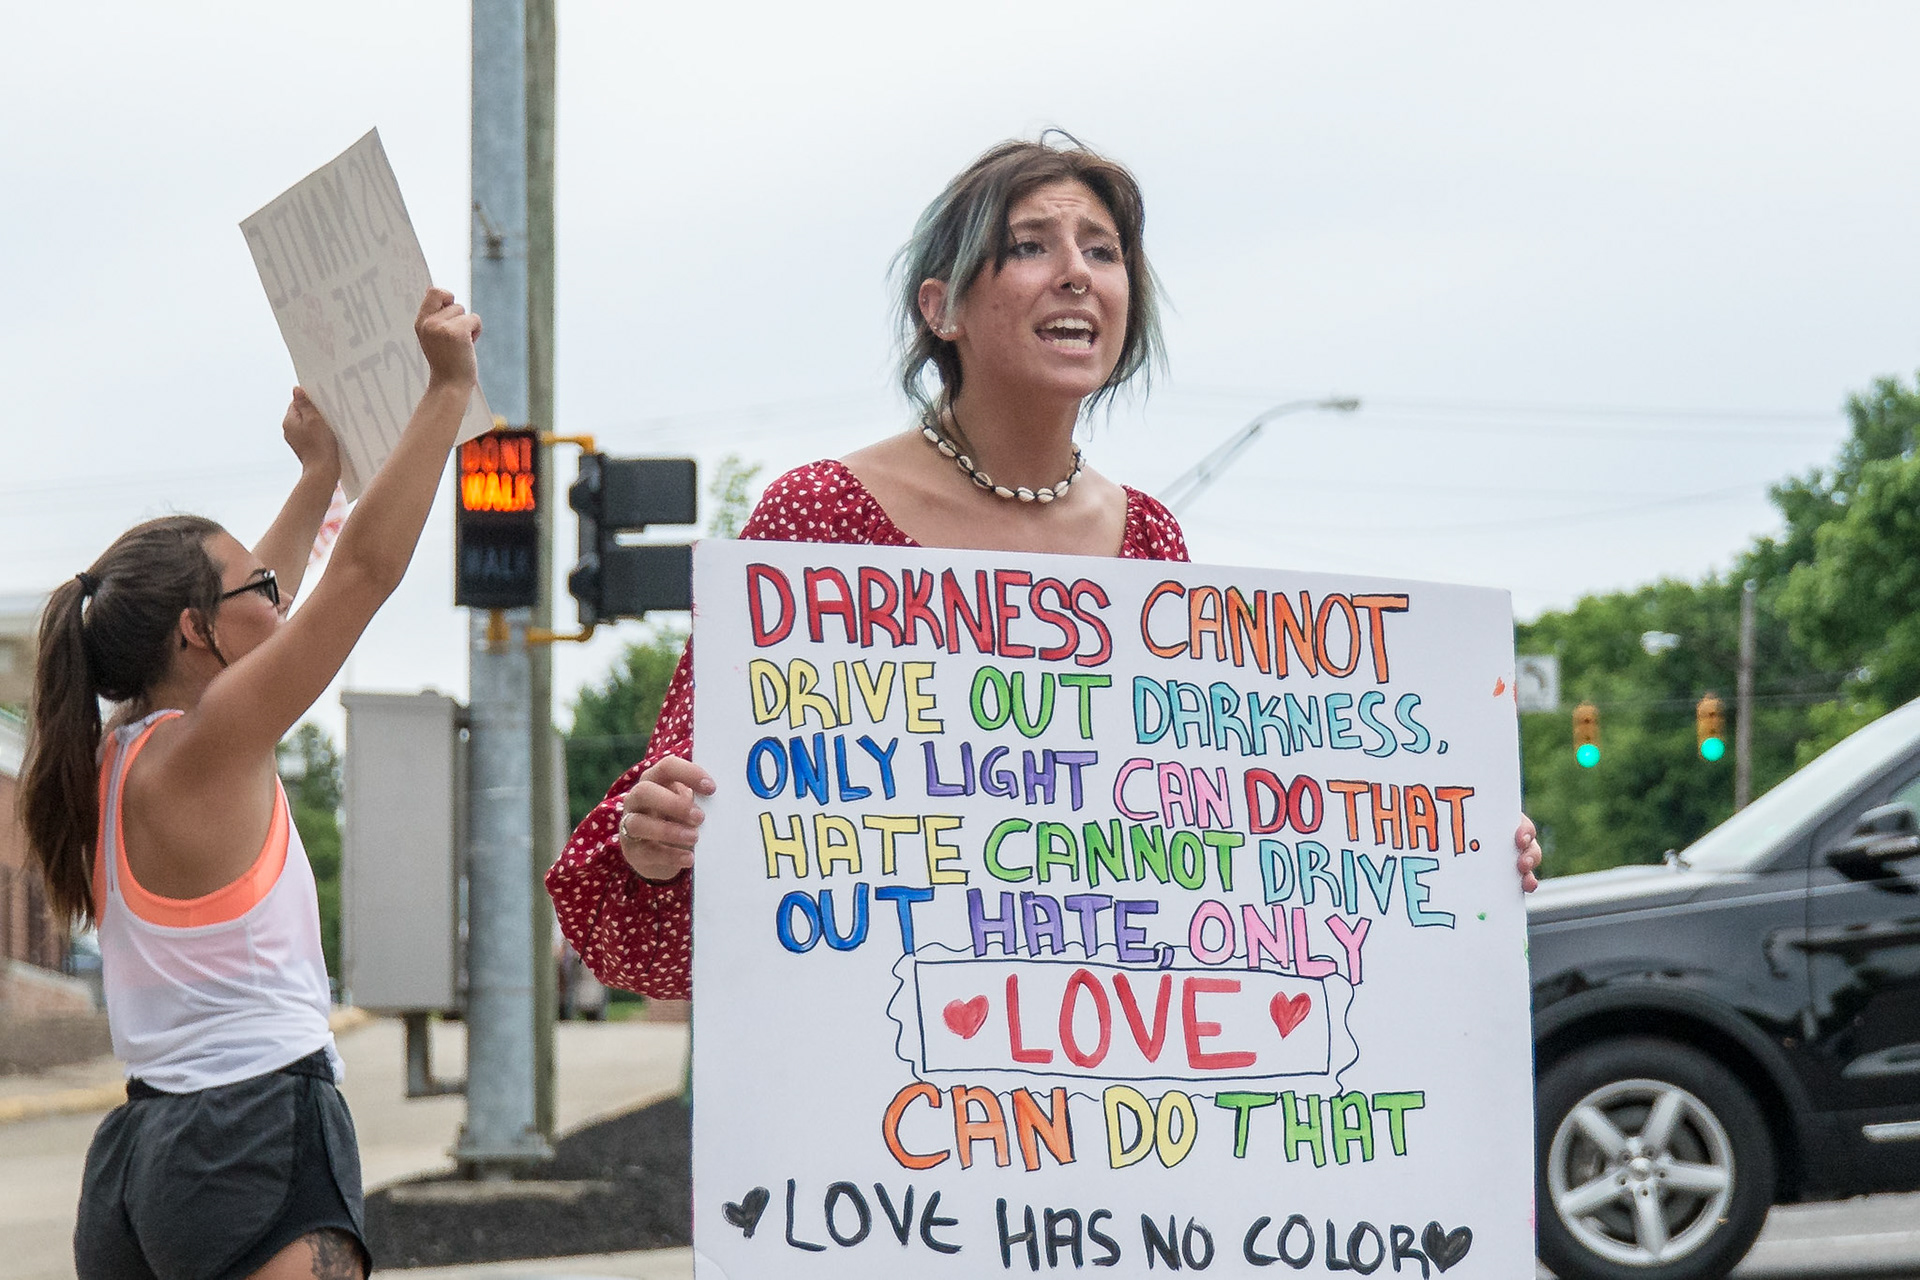 DISMANTLE
THE
SYSTEM
DONT
WALK
WALK
DARKNESS CANNOT
DRIVE OUT DARKNESS,
ONLY LIGHT CAN DO THAT.
HATE CANNOT DRIVE
OUT HATE, ONLY
LOVE
CAN DO THAT
LOVE HAS NO COLOR